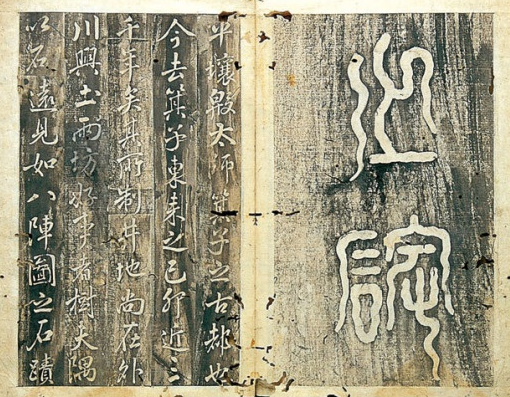 之
平壤殷太師箕子之古都也
今去箕子東來之己卯近三
千年矣其所制井地尚在外
川興土兩坊好事者樹夫隅
以石遠見如八陣圖之石蹟